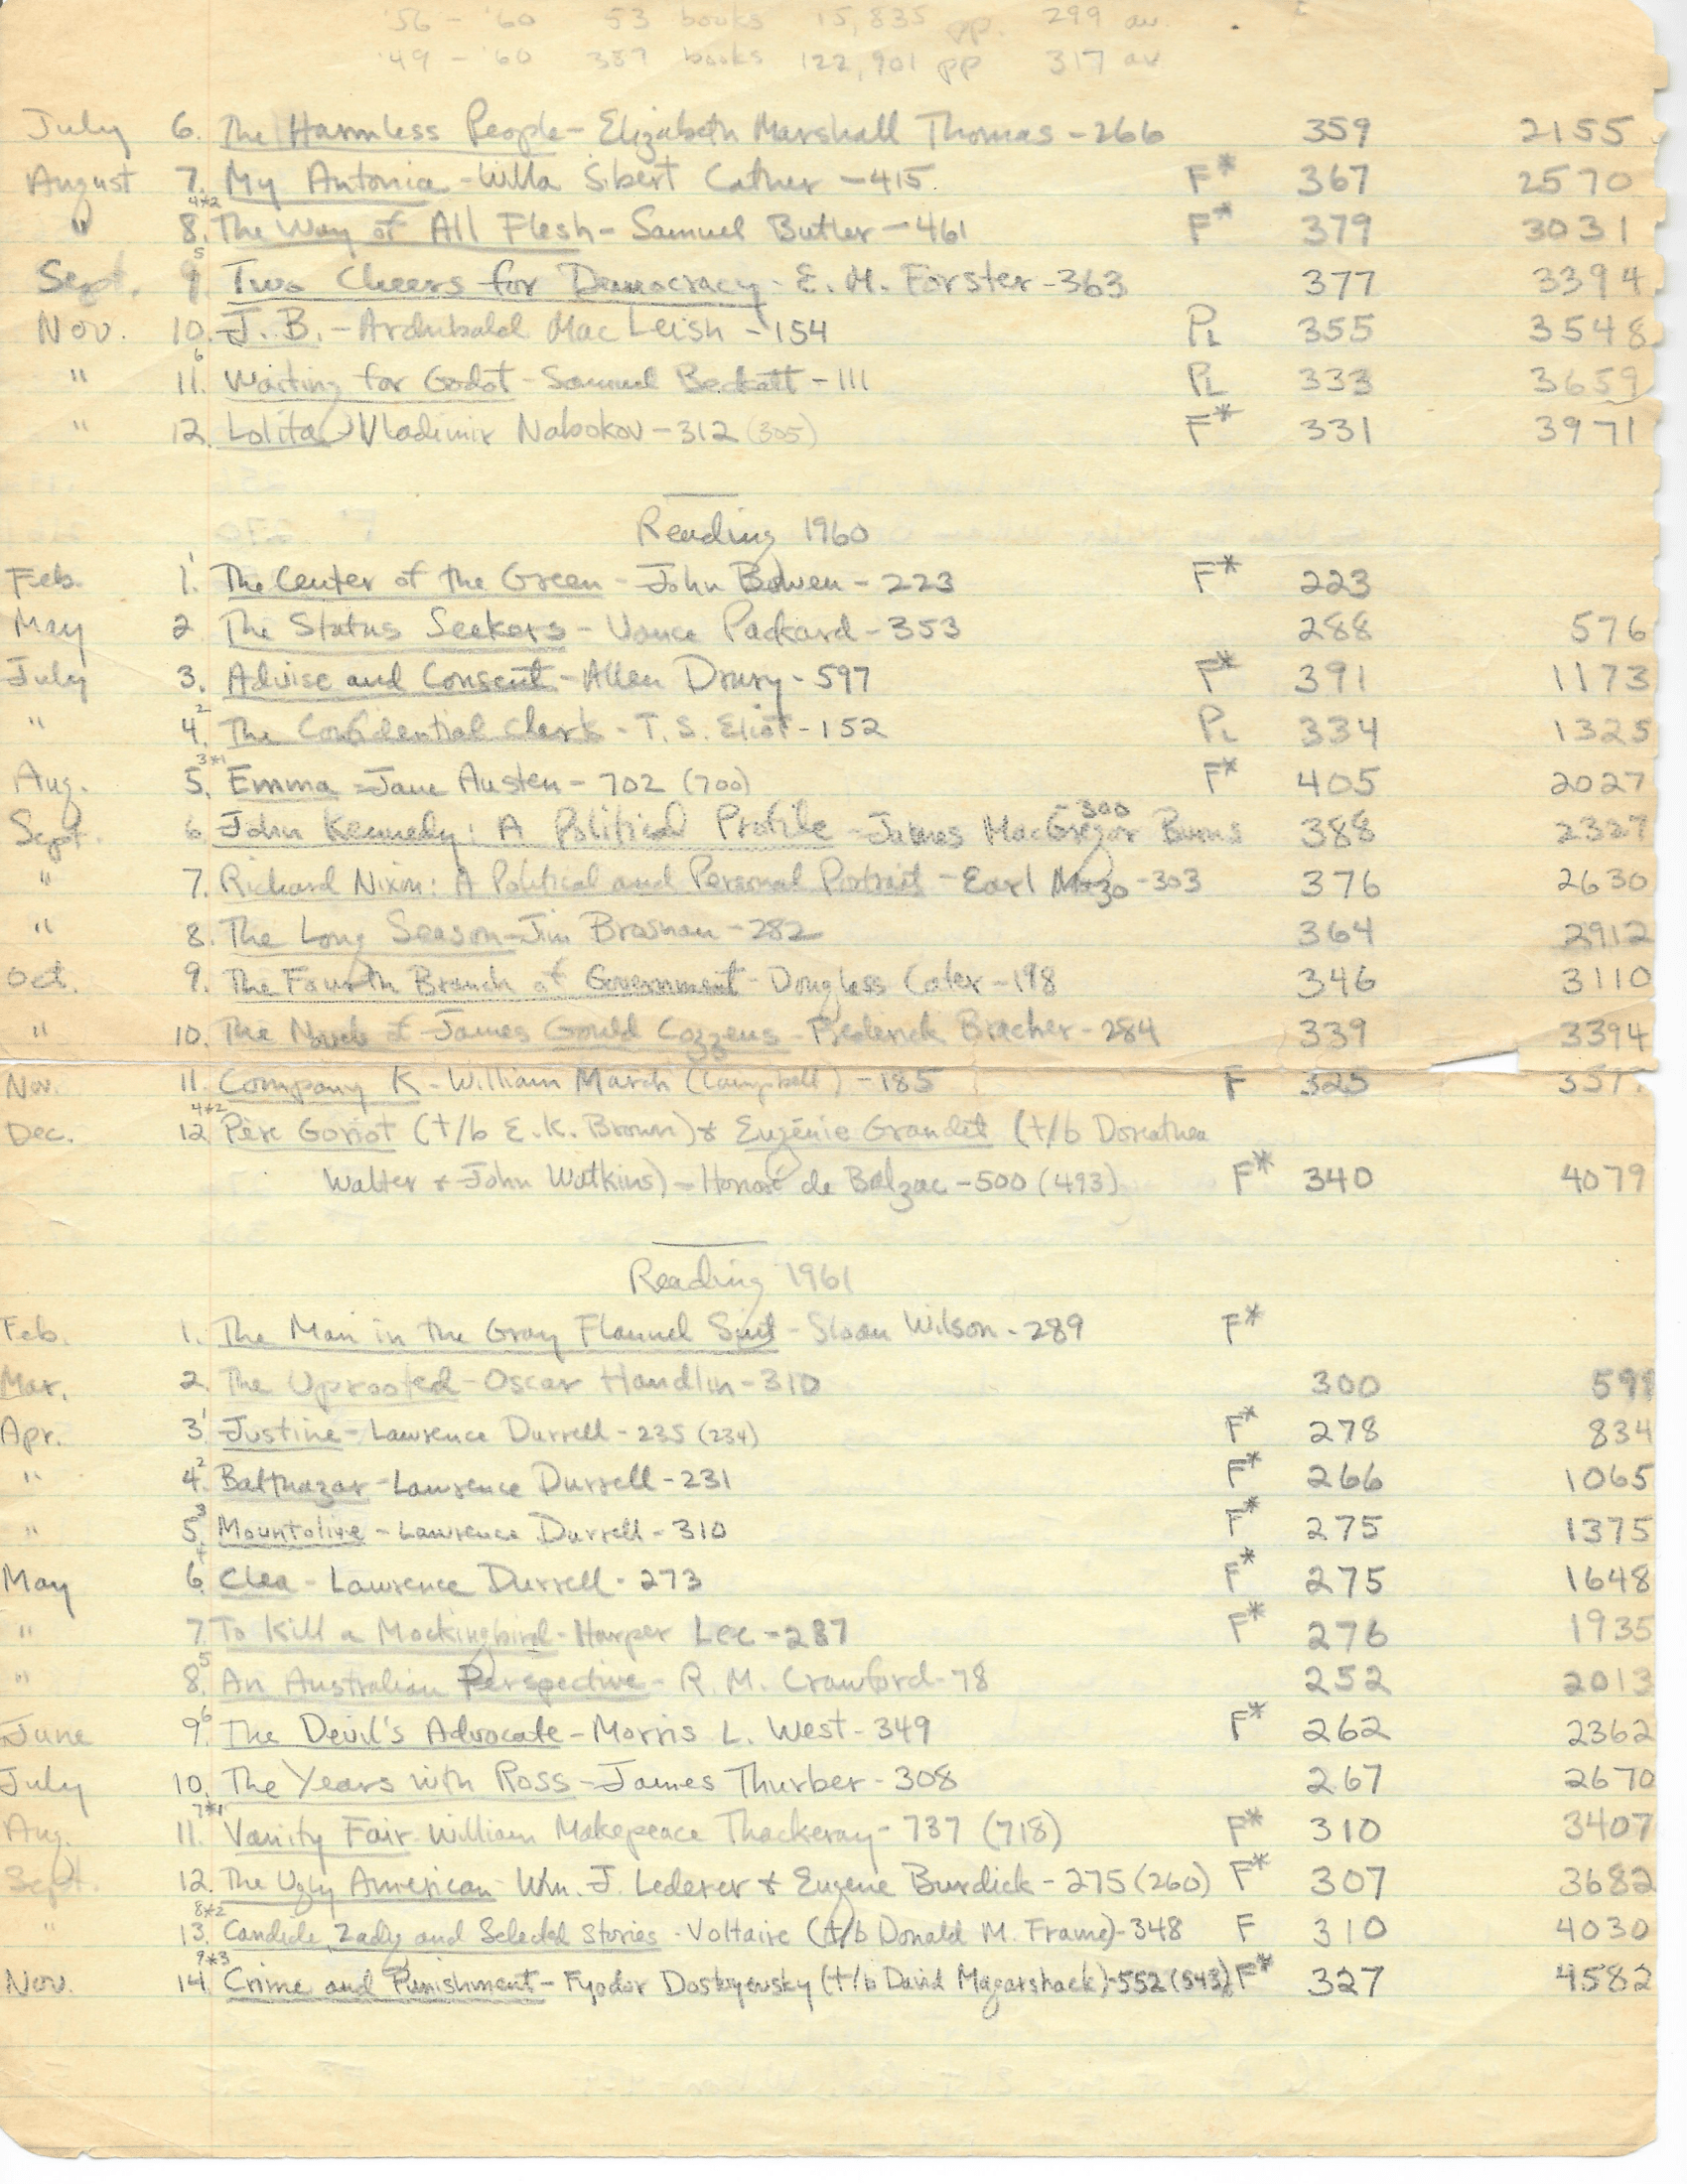 '56 - '60 53 books 15,835 pp. 299 av.
'49 - '60 387 books 122,901 pp 317 av
July 6. The Harmless People - Elizabeth Marshall Thomas - 266 359 2155
August 7. My Antonia - Willa Sibert Cather - 415 F* 367 2570
" 8. 4*2 The Way of All Flesh - Samuel Butler - 461 F* 379 3031
Sept. 9. 5 Two Cheers for Democracy - E. M. Forster - 363 377 3394
Nov. 10. J. B. - Archibald MacLeish - 154 PL 355 3548
" 11. 6 Waiting for Godot - Samuel Beckett - 111 PL 333 3659
" 12. Lolita - Vladimir Nabokov - 312 (305) F* 331 3971
Reading 1960
Feb. 1. 1 The Center of the Green - John Bowen - 223 F* 223
May 2 The Status Seekers - Vance Packard - 353 288 576
July 3. Advise and Consent - Allen Drury - 597 F* 391 1173
" 4. 2 The Confidential Clerk - T. S. Eliot - 152 PL 334 1325
Aug. 5. 3*1 Emma - Jane Austen - 702 (700) F* 405 2027
Sept. 6 John Kennedy: A Political Profile - James MacGregor Burns - 300 388 2327
" 7. Richard Nixon: A Political and Personal Portrait - Earl Mazo - 303 376 2630
" 8. The Long Season - Jim Brosnan - 282 364 2912
Oct. 9. The Fourth Branch of Government - Douglass Cater - 198 346 3110
" 10. The Novels of James Gould Cozzens - Frederick Bracher - 284 339 3394
Nov. 11. Company K - William March (Campbell) - 185 F 325
Dec. 12 4*2 Père Goriot (t/b E. K. Brown) & Eugénie Grandet (t/b Dorothea
Walter & John Watkins) - Honoré de Balzac - 500 (493) F* 340 4079
Reading 1961
Feb. 1. The Man in the Gray Flannel Suit - Sloan Wilson - 289 F*
Mar. 2. The Uprooted - Oscar Handlin - 310 300 599
Apr. 3. 1 Justine - Lawrence Durrell - 235 (234) F* 278 834
" 4. 2 Balthazar - Lawrence Durrell - 231 F* 266 1065
" 5. 3 Mountolive - Lawrence Durrell - 310 F* 275 1375
May 6. 4 Clea - Lawrence Durrell - 273 F* 275 1648
" 7. To Kill a Mockingbird - Harper Lee - 287 F* 276 1935
" 8. 5 An Australian Perspective - R. M. Crawford - 78 252 2013
June 9. 6 The Devil's Advocate - Morris L. West - 349 F* 262 2362
July 10. The Years with Ross - James Thurber - 308 267 2670
Aug. 11. 7*1 Vanity Fair - William Makepeace Thackeray - 737 (718) F* 310 3407
Sept. 12. The Ugly American - Wm. J. Lederer & Eugene Burdick - 275 (260) F* 307 3682
" 13. 8*2 Candide, Zadig and Selected Stories - Voltaire (t/b Donald M. Frame) - 348 F 310 4030
Nov. 14. 9*3 Crime and Punishment - Fyodor Dostoyevsky (t/b David Magarshack) - 552 (543) F* 327 4582